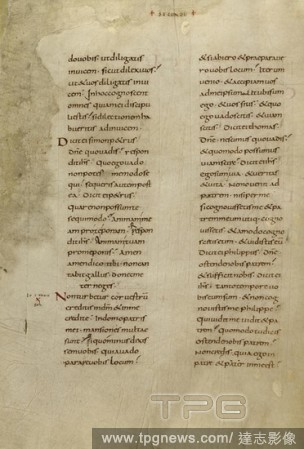 do vobis ut diligatis
invicem sicut dilexi vos
ut & vos diligatis
invicem In hoc cognoscent
omnes quia mei discipu
li estis si dilectionem ha
bueritis ad invicem
Dicit ei simon petrus
dne quo vadis respon
dit ihs Quo ego vado
non potes me modo se
qui sequeris autem post
ea Dicit ei petrus
Quare non possum te
sequi modo Animam me
am pro te ponam respon
dit ihs Animam tuam
pro me ponis Amen
amen dico tibi non can
tabit gallus donec me
ter neges
Non turbetur cor vestrū
creditis in dm & in me
credite In domo patris
mei mansiones multae
sunt si quo minus dixis
sem vobis quia vado
parare vobis locum
& si abiero & praeparave
ro vobis locum Iterum
venio & accipiam vos
ad me ipsum ut ubi sum
ego & vos sitis & quo
ego vado scitis & viam
scitis Dicit ei thomas
Dne nescimus quo vadis
& quomodo possumus
viam scire Dicit ei ihs
ego sum via & veritas
& vita Nemo venit ad
patrem nisi per me
si cognovissetis me & pa
trem meum utique cogno
vissetis & amodo cognos
cetis eum & vidistis eū
Dicit ei philippus dne
ostende nobis patrem
& sufficit nobis Dicit ei
ihs Tanto tempore vo
biscum sum & non cog
novistis me philippe
Qui vidit me vidit & pa
trem Quomodo tu dicis
ostende nobis patrem
Non credis quia ego in
patre & pater in me est
TPG
www.tpgnews.com/ 達志影像